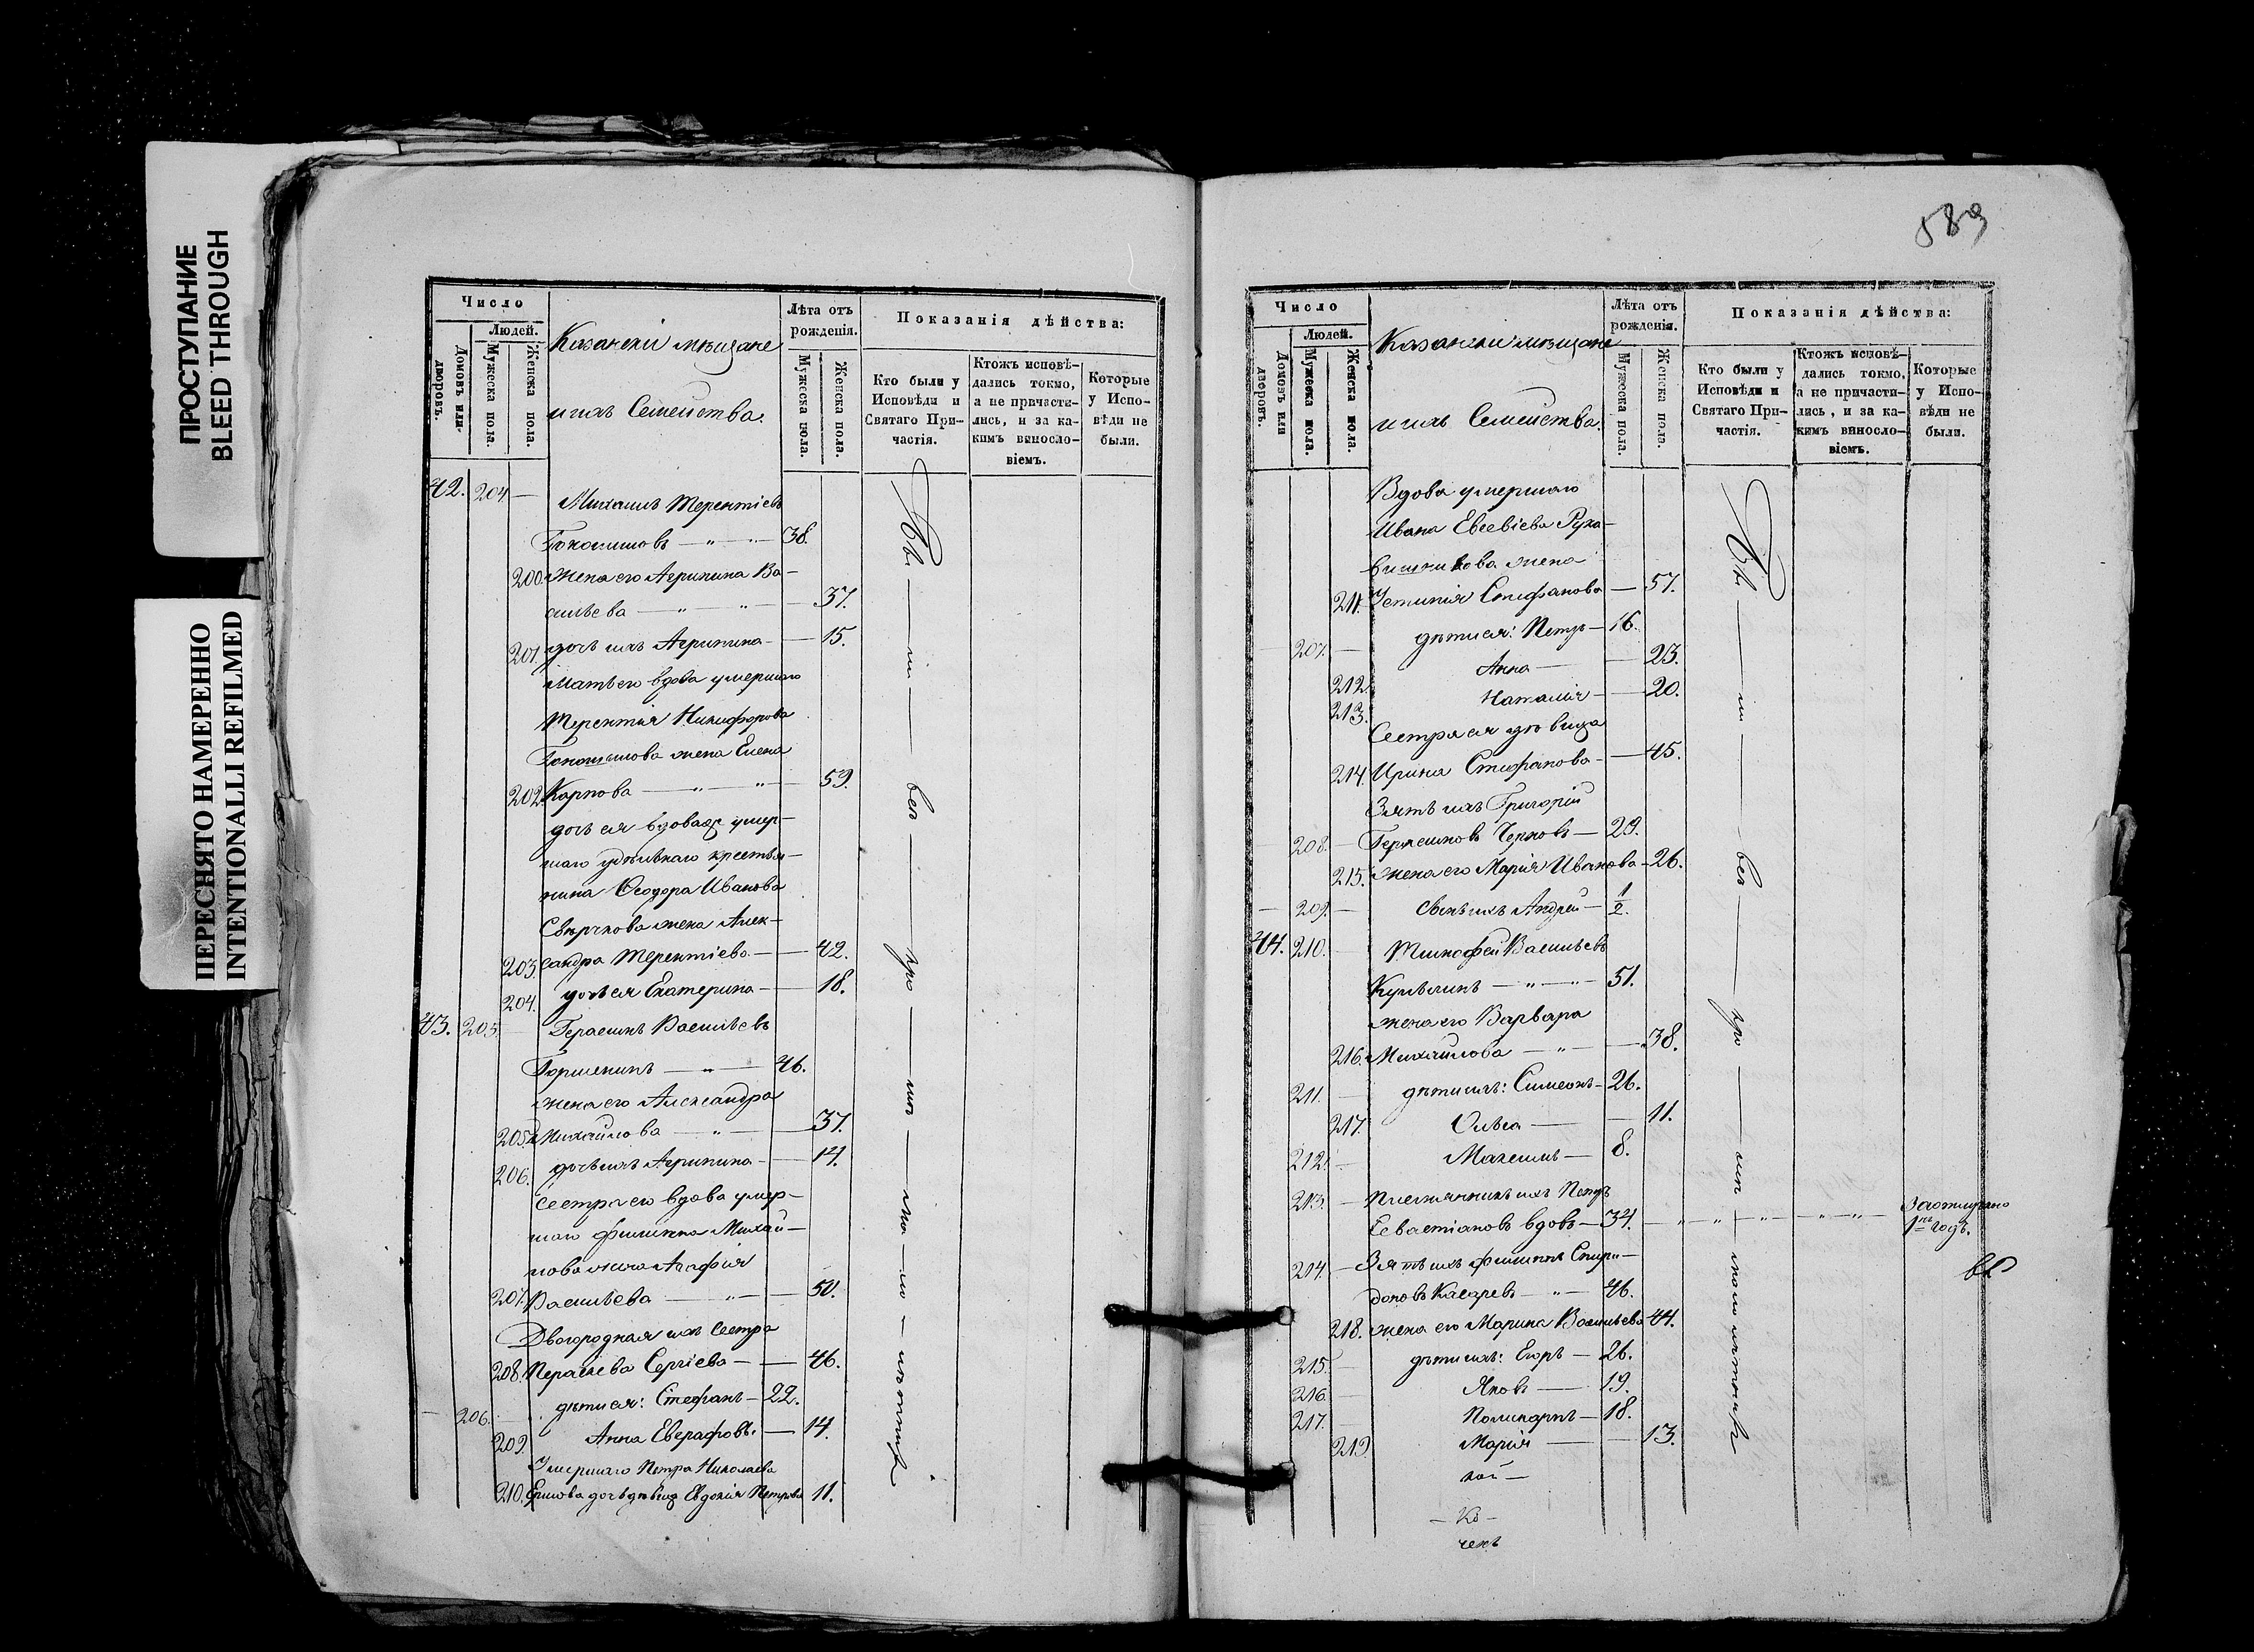 ПРОСТУПАНИЕ
BLEED THROUGH
ПЕРЕСНЯТО НАМЕРЕННО
INTENTIONALLI REFILMED
Число
Людей.
Домовъ или дворовъ.
Мужеска пола.
Женска пола.
Казанскiи мѣщане
и ихъ Семейства.
Лѣта отъ рожденiя.
Мужеска пола.
Женска пола.
Показанiя дѣйства:
Кто были у Исповѣди и Святаго Причастiя.
Ктожъ исповѣдались токмо, а не причастились, и за какимъ винословiемъ.
Которые у Исповѣди не были.
42. 204 — Михаилъ Терентiевъ
38.
200. жена его Агрипина Ва-
сильева — „ — „ — 37.
201. дочь ихъ Агрипина — 15.
Мать его вдова умершаго
Терентiя Никифорова
жена Елена
202. Карпова — „ — „ — 59.
дочь ея вдовая умер-
шаго удѣльнаго крестья-
нина Ѳеодора Иванова
Свѣрчкова жена Алек-
203. сандра Терентiева — 42.
204. дочь ея Екатерина — 18.
43. 205. Герасимъ Васильевъ
Горшенинъ — „ — 46.
жена его Александра
205. Михайлова — „ — 37.
206. дочь ихъ Агрипина — 14.
Сестра его вдова умер-
шаго Филиппа Михай-
лова жена Агафiя
207. Васильева — „ — 50.
Двоюродная ихъ Сестра
208. Параскева Сергiева — 46.
206. дѣти ея: Стефанъ — 22.
209. Анна Евграфов. — 14.
Умершаго Петра Николаева
210. дочь дѣвица Евдокiя Петрова 11.
Всѣ
589
Число
Людей.
Домовъ или дворовъ.
Мужеска пола.
Женска пола.
Казанскiи мѣщане
и ихъ Семейства.
Лѣта отъ рожденiя.
Мужеска пола.
Женска пола.
Показанiя дѣйства:
Кто были у Исповѣди и Святаго Причастiя.
Ктожъ исповѣдались токмо, а не причастились, и за какимъ винословiемъ.
Которые у Исповѣди не были.
Вдова умершаго
Ивана Евсевiева Рука-
вишникова жена
211. Устинiя Стефанова — 57.
207. — дѣти ея: Петръ — 16.
212. Анна — 23.
213. Наталiя — 20.
Сестра ея дѣвица
214. Ирина Стефанова — 45.
Зять ихъ Григорiй
208. — Герасимовъ Черновъ — 29.
215. жена его Марiя Иванова — 26.
— 209. — сынъ ихъ Андрей — 1/2.
44. 210. Тимофей Васильевъ
— „ — „ — 51.
жена его Варвара
216. Михайлова — „ — 38.
211. дѣти ихъ: Симеонъ — 26.
217. Ольга — 11.
212. Максимъ — 8.
213. — Племянникъ ихъ Петръ
Севастiановъ вдовъ — 34. — „ — „ — „ — „ — „ —
1й годъ.
214. — Зять ихъ Филиппъ Спири-
доновъ — „ — 46.
218. жена его Марина Васильева 44.
215. дѣти ихъ: Егоръ — 26.
216. Яковъ — 19.
217. Поликарпъ — 18.
219. Марiя — 13.
кой —